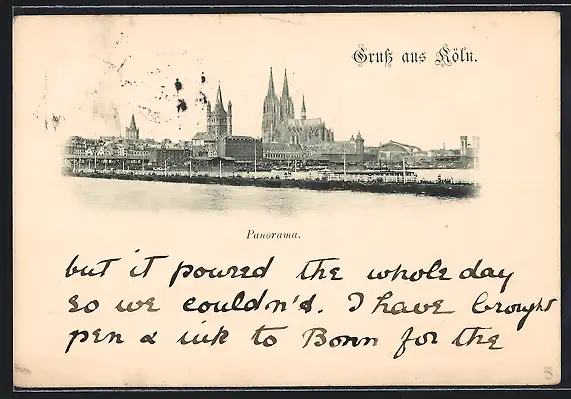 Gruß aus Köln.
Panorama.
but it poured the whole day
so we couldn'd. I have brought
pen & ink to Bonn for the